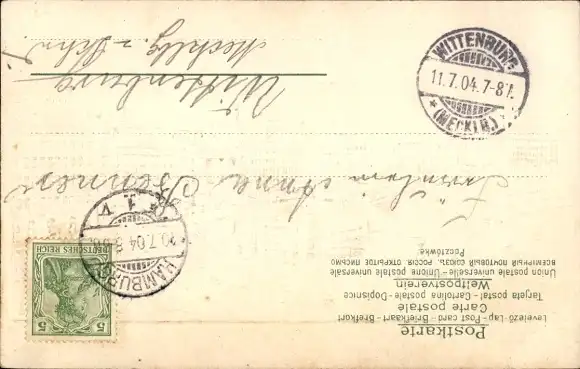 Postkarte
Carte postale
Levelező-Lap – Post card – Briefkaart – Brefkort
Weltpostverein
Tarjeta postal – Cartolina postale – Dopisnice
Union postale universelle – Unione postale universale
ВСЕМИРНЫЙ ПОЧТОВЫЙ СОЮЗЪ. РОССІЯ. ОТКРЫТОЕ ПИСЬМО
Pocztówka
5
DEUTSCHES REICH
HAMBURG
10.7.04
* 1 V
Fräulein Anna
Wittenburg
Mecklbg.
WITTENBURG
11.7.04.7-8V.
* (MECKLB.) *